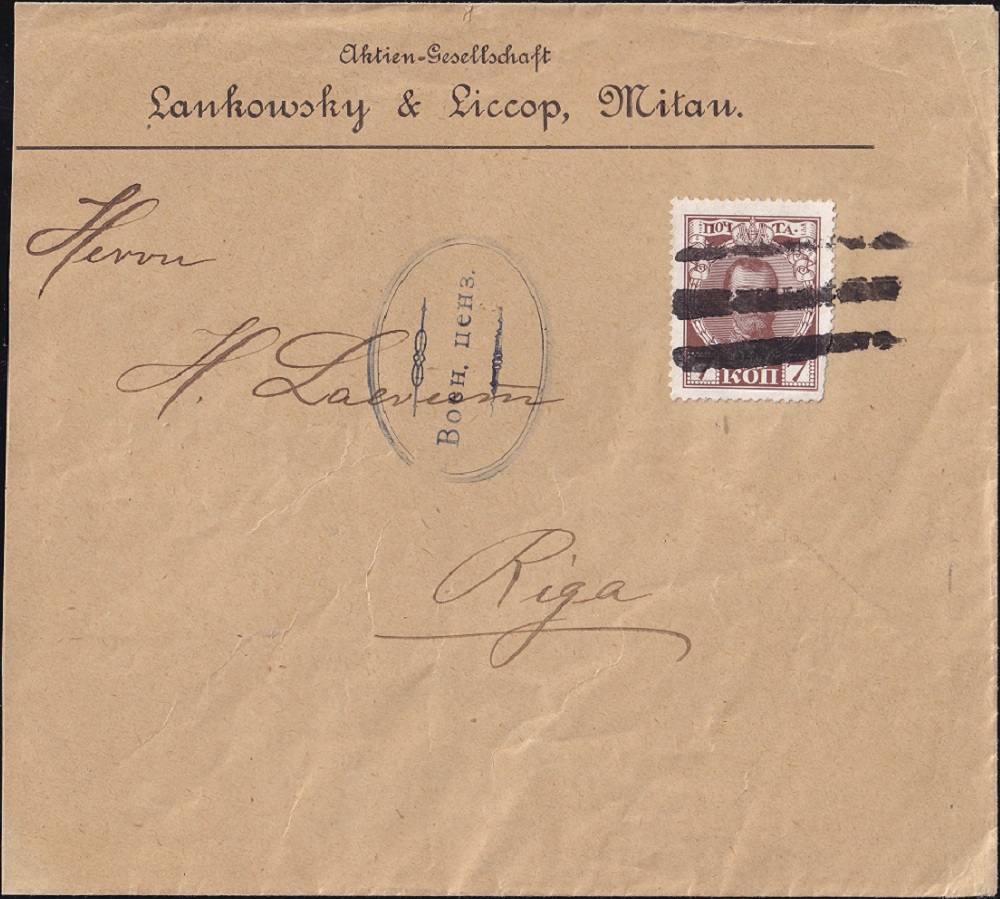 Aktien-Gesellschaft
Lankowsky & Liccop, Mitau.
Herrn
ПОЧТА
Воен. ценз.
H.
7 КОП 7
Riga